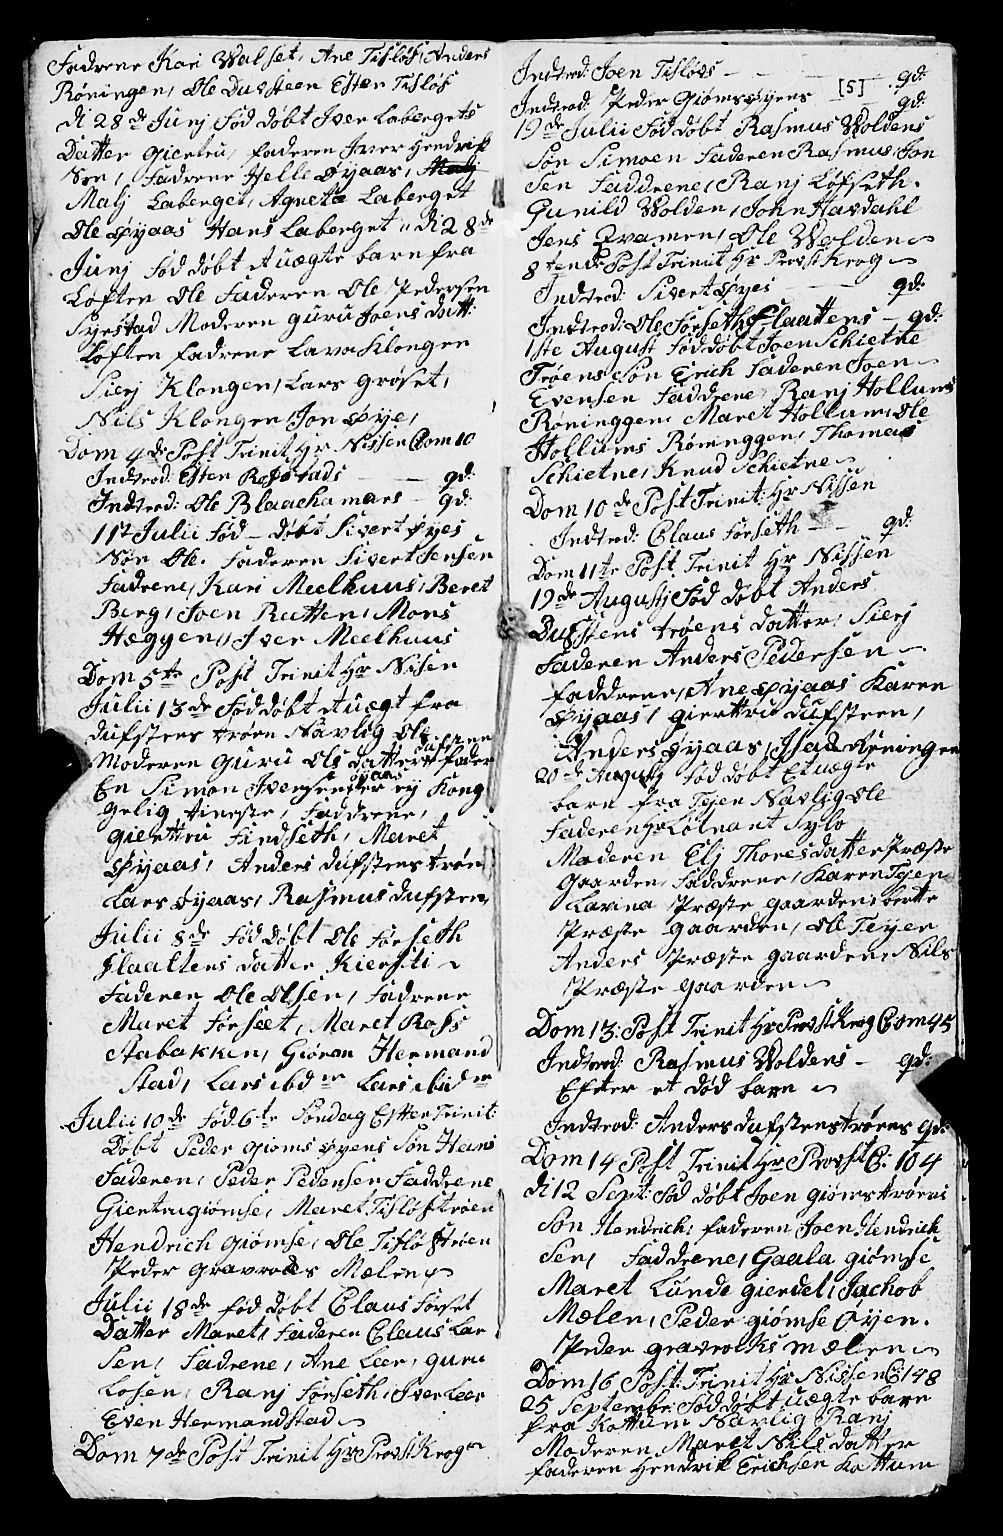 Fadrene Kari Walset, Ane Tisløf, Anders
Røningen, Ole Dusteen Esten Tisløf
di 28de Junj Fød døbt Iver Labergets
Datter giertru, faderen Iver Hendrik
Søn, Fadrene Helle Øyaas,
Malj Laberget, Agneta Laberget
Ole Øyaas Hans Laberget „ di 28de
Junj Fød døbt et uægte barn fra
Løften Ole Faderen Ole Pedersen
Syrstad Moderen guru Joens datt:
Løften fadrene Lava Klongen
Sierj Klongen, Lars grøset,
Nils Klongen Jon Øye,
Dom 4de Post Trinit Hr Nissen Com 10
Indtrod: Esten Rostads — gd:
Indtrod: Ole Blaachamars — gd:
11st Julii Fød — døbt Sivert Øyes
Søn Ole. Faderen Sivert Jensen
Fadrene, Kari Meelhuus, Beret
Berg, Joen Rutten, Mons
Hæggen, Iver Meelhuus
Dom 5te Post Trinit Hr Nisen
Julii 13de Fød døbt et uægt fra
dufstens trøen Navlig Ole
Moderen Guru Ols datter dufsten fader
En Simon Iversen Øyaas ej Kong
gelig tineste, Faddrene,
gierttru Findseth, Maret
Øyaas, Anders dufstens trøen
Lars Øyaas, Rasmus dufsteen,
Julii 8de Fød Døbt Ole Førseth
flaattens datter Kiersti
Faderen Ole Olsen, Fadrene
Maret Førseet, Maret Ross
stabakken, Giøran Hermand
stad, Lars ibden Lars ibiden
Julii 10de Fød 6te Søndag Efter Trinit:
Døbt Peder gioms øyens Søn Hans
Faderen, Peder Pedersen Faddrene
Giertru giømse, Maret Tisløstrøen
Hendrich giømse, Ole Tisløstrøen
Peder gravroks Mælen
Julii 18de fød døbt Claus Førset
Datter Maret, Faderen Claus Lar
Sen, Fadrene, Ane Leer, guru
Losen, Ranj Førseth, Iver Leer
Even Hermandstad
Dom 7de Post Trinit Hr Provst Krog
Indtrod: Joen Tisløvs — gd:
[5]
Indtrod: Peder Giømsøyens gd:
19de Julii Fød døbt Rasmus Woldens
Søn Simoen Faderen Rasmus Jon
Sen Faddrene, Ranj Løfseth.
Gunild Wolden, John Havdahl
Jens Qvamen, Ole Wolden
8tende Post Trinit Hr Provst Krog
Indtrod: Sivert Øyes — gd:
Indtrod: Ole Førseth flaattens — gd:
1ste August Fød døbt Joen Schietne
Trøens Søn Erich Faderen Joen
Evensen Faddrene Ranj Hollums
Røninggen, Maret Hollum, Ole
Hollums Røninggen, Thomas
Schietne, Knud Schietne
Dom 10de Post Trinit: Hr Nissen
Indtrod: Claus Førseth — gd:
Dom 11te Post Trinit Hr Nissen
19de Augustj Fød døbt Anders
Dufstens trøens datter, Sierj
Faderen Anders Pedersen
faddrene, Ane Øyaas Karen
Øyaas, gierttru dufsteen,
Anders Øyaas, Isach Røningen
20de Augustj Fød døbt Et uægte
barn fra Teyen Navlig Ole
Faderen Hr Løtnant Sylo
Moderen Elj Thoresdatter Præste
Gaarden, Faddrene, Karen Teyen
Larina Præste gaarden berte
Præste gaarden, Ole Teyen
Anders Præste gaarden, Nils
Præste gaarden
Dom 13: Post Trinit Hr Provst Krog Com 45
Indtrod: Rasmus Woldens — gd:
Efter et død barn
Indtrod: Anders dufstens trøens gd:
Dom 14 Post Trinit Hr Provst C: 104
di 12 Sept: Fød døbt Joen giømstrøens
Søn Hendrich, faderen Joen Hendrich
Sen, Faddrene, Gaala giømse
Maret Lunde giendet, Jachob
Mælen, Peder giømse Øyen.
Peder gravrolks mælen
Dom 16 Post: Trinit Hr Nissen C: 148
25 Septembr: Fød døbt uægte barn
fra Kottum Navlig Ranj
Moderen Maret Nils datter
Faderen Hendrik Erichsen Kottum